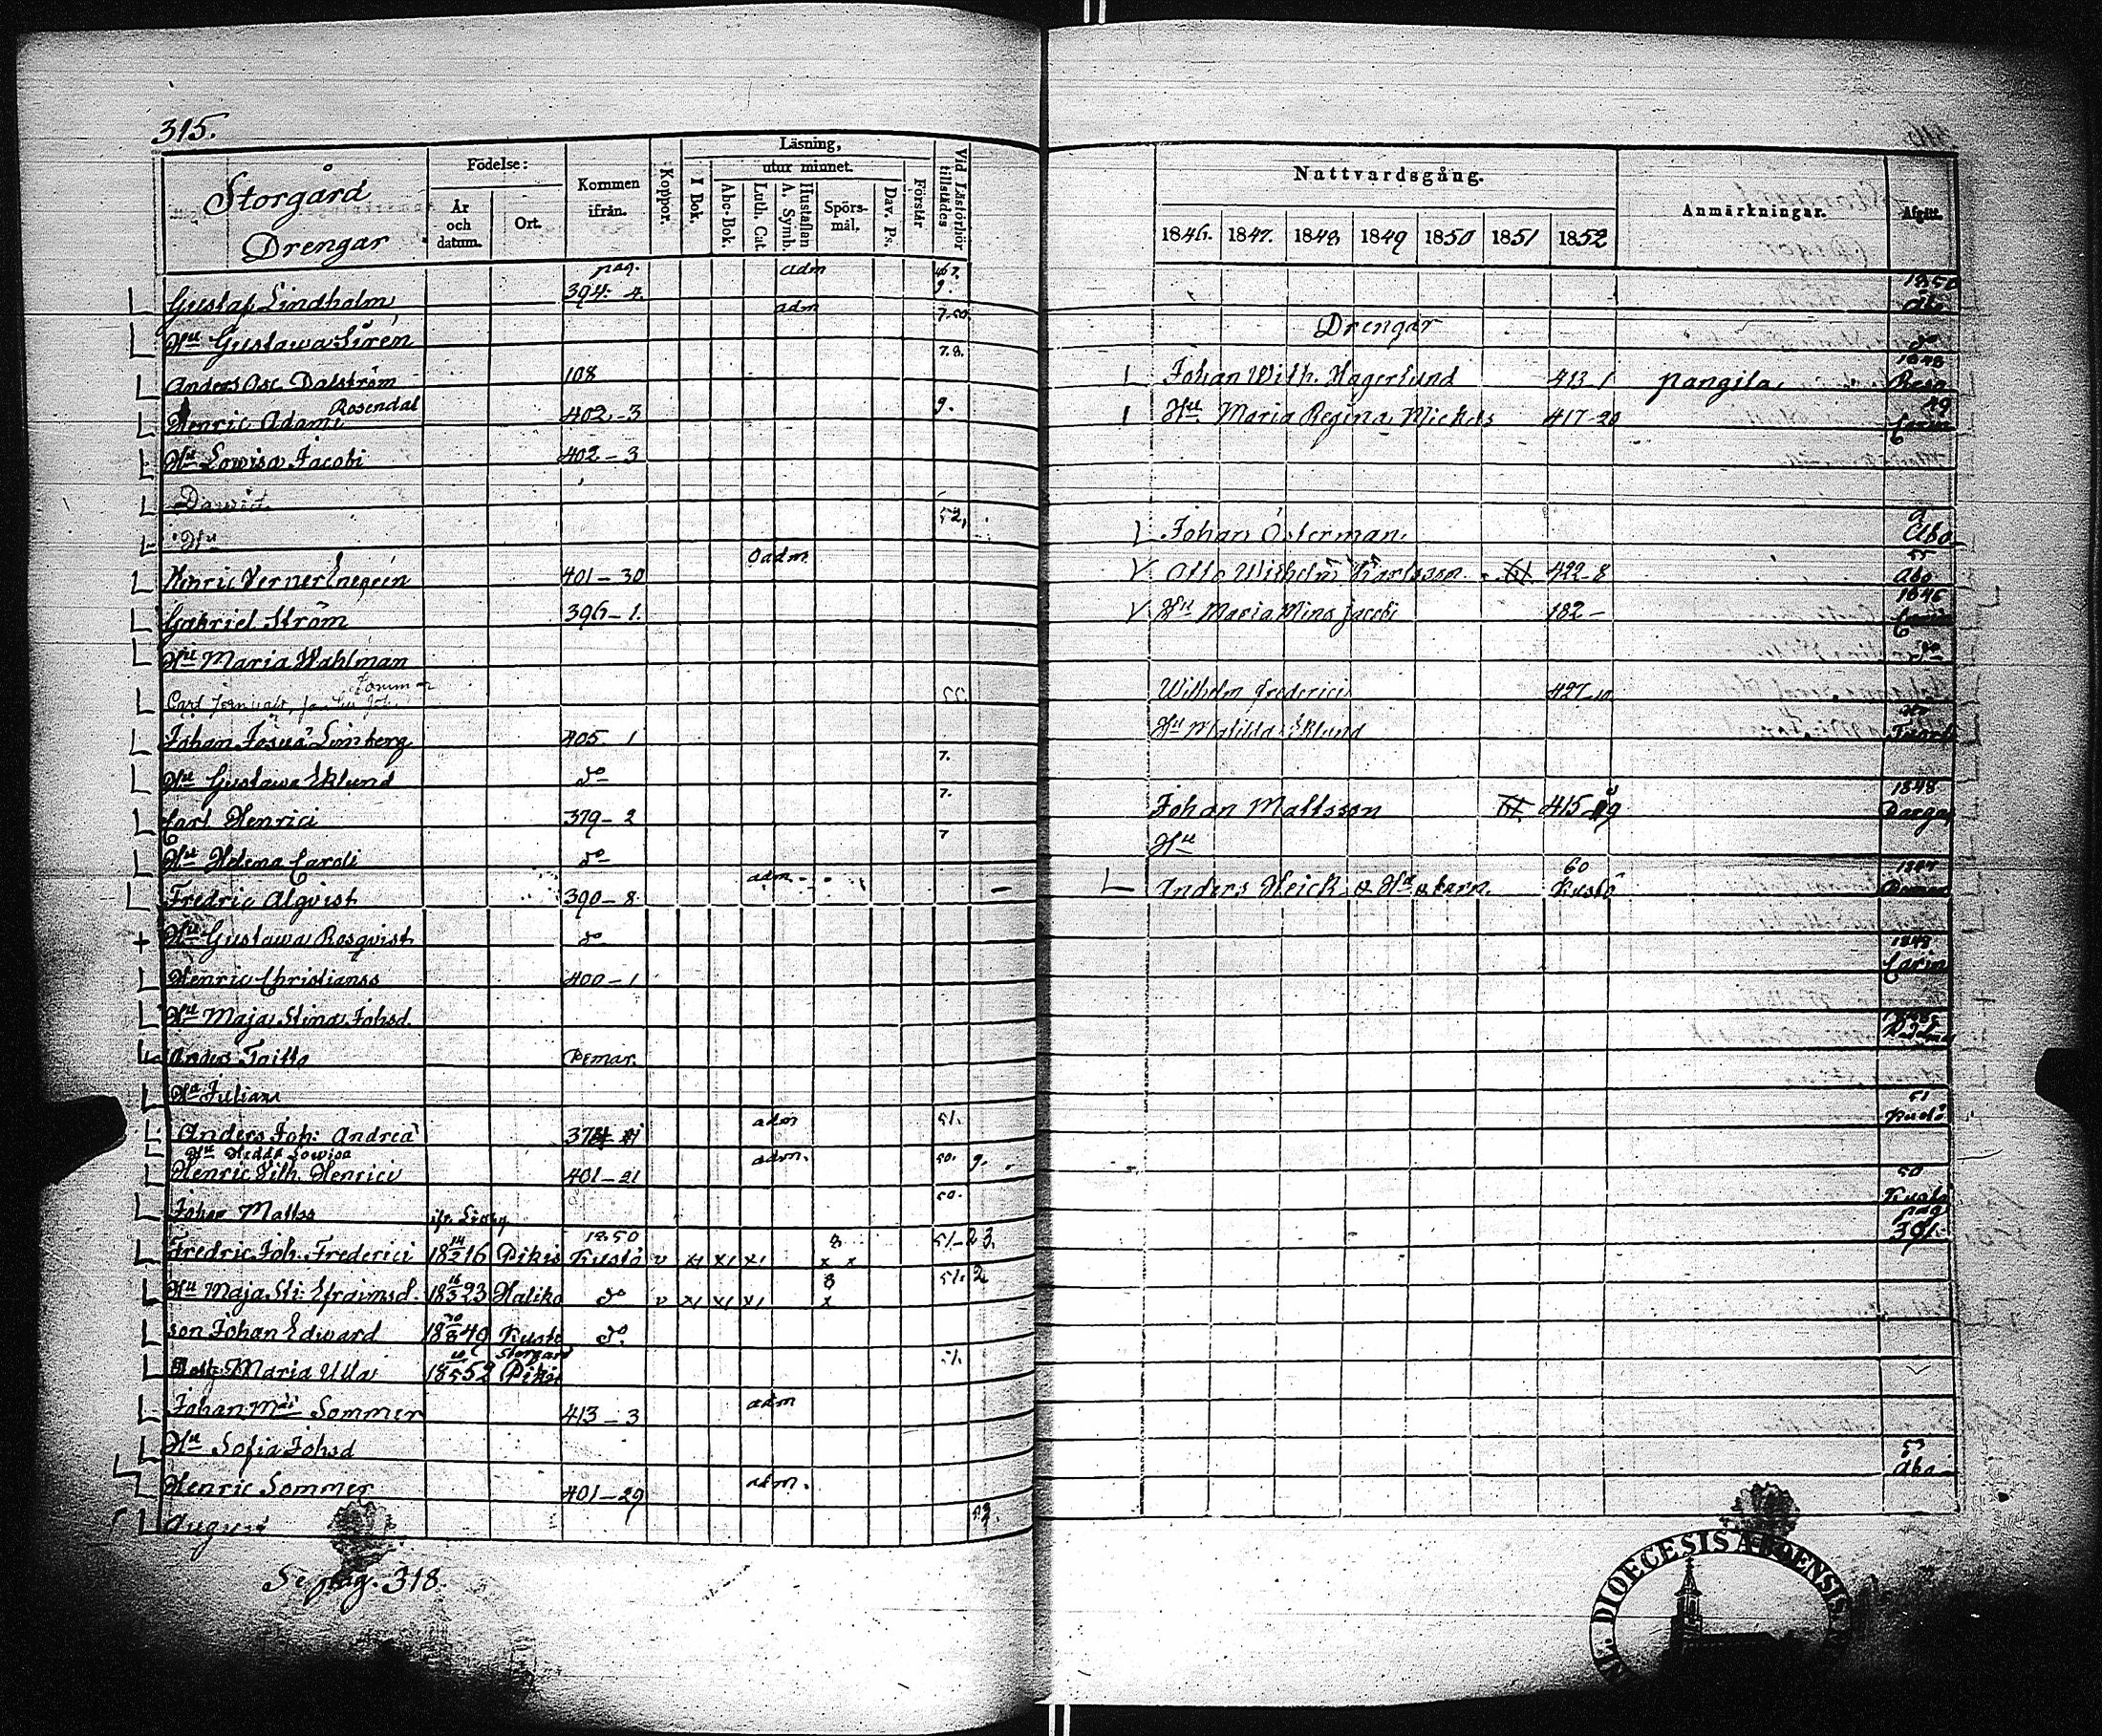 315.
Storgård
Drengar
Födelse:
År och datum.
Ort.
Kommen ifrån.
Koppor.
Läsning,
utur minnet.
I Bok.
Abc-Bok.
Luth. Cat.
A. Symb.
Hustaflan
Spörsmål.
Dav. Ps.
Förstår
Vid Läsförhör tillstädes
pag. adm
Gustaf Lindholm 394. 4. 9.
adm 7.50
Hu Gustawa Sirén 7.8.
Anders Asc. Dalström 108
Henric Adami Rosendal 402-3 9.
Hu Lowisa Jacobi 402-3
Dawid
Hu 52.
Henric Verner Enegren 401-30 adm
Gabriel Ström 396-1.
Hu Maria Wahlman
Carl
Johan Josua Limberg 405. 1
Hu Gustawa Eklund do 7.
Carl Henrici 379-2 7.
Hu Helena Caroli do 7
Fredric Alqvist 390-8. adm
Hu Gustawa Rosqvist do
Henric Christianss 400-1
Hu Maja Stina Johsd.
Anders Taitto Pemar.
Ha Juliana
Anders Joh: Andreæ adm 51.
Hu Hedda Lowisa
Henric Vilh. Henrici 401-21 adm. 50. 9.
Johan Matss 50.
Fredric Joh. Frederici 18 14/2 16 Pikis 1850 Kustö v x x x 8 x x 51-2 3.
Hu Maja Sti: Efraimsd. 18 16/3 23 Haliko do v x x x 8 x 51. 2
son Johan Edward 18 49 Kustö do
Maria Ulla 18 52 Storgård Pikis
Johan Sommer 413-3 adm
Hu Sofia Johsd
Henric Sommer 401-29 adm.
August
Se pag. 318.
Nattvardsgång.
Anmärkningar.
Afgått.
1846. 1847. 1848 1849 1850 1851 1852
1850
Åbo
Drengar
do
Johan Wilh. Hagerlund 413-1 pangila 1848 Reso
Hu Maria Regina Mickels 417-20 49
Johan Österman. Åbo
Otto Wilhelm Karlsson 422-8 55 Åbo
Hu Maria Mina Jacobi 182- 1846
Wilhelm Frederici 427-10
Hu Matilda Eklund
Johan Mattsson 415-19 1848
Hu
Anders Heick & Hu & barn 60 Kustö
1848
51
50
Kustö
pag
53
Åbo
DIOECESIS ABOENSIS